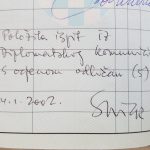 Položila ispit iz
Diplomatskog komunici
s ocjenom odličan (5)
4.1.2002.